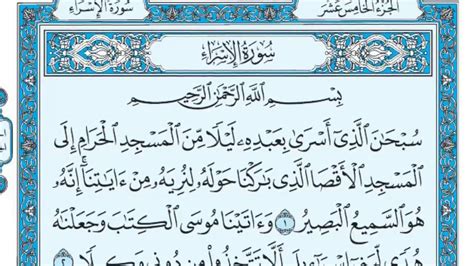 سُورَةُ الإِسْرَاءِ
الجُزْءُ الخَامِسَ عَشَرَ
سُورَةُ الإِسْرَاءِ
بِسْمِ ٱللَّهِ ٱلرَّحْمَٰنِ ٱلرَّحِيمِ
سُبْحَٰنَ ٱلَّذِىٓ أَسْرَىٰ بِعَبْدِهِۦ لَيْلًا مِّنَ ٱلْمَسْجِدِ ٱلْحَرَامِ إِلَى
ٱلْمَسْجِدِ ٱلْأَقْصَا ٱلَّذِى بَٰرَكْنَا حَوْلَهُۥ لِنُرِيَهُۥ مِنْ ءَايَٰتِنَآ ۚ إِنَّهُۥ
هُوَ ٱلسَّمِيعُ ٱلْبَصِيرُ ١ وَءَاتَيْنَا مُوسَى ٱلْكِتَٰبَ وَجَعَلْنَٰهُ
هُدًى لِّبَنِىٓ إِسْرَٰٓءِيلَ أَلَّا تَتَّخِذُوا۟ مِن دُونِى وَكِيلًا ٢